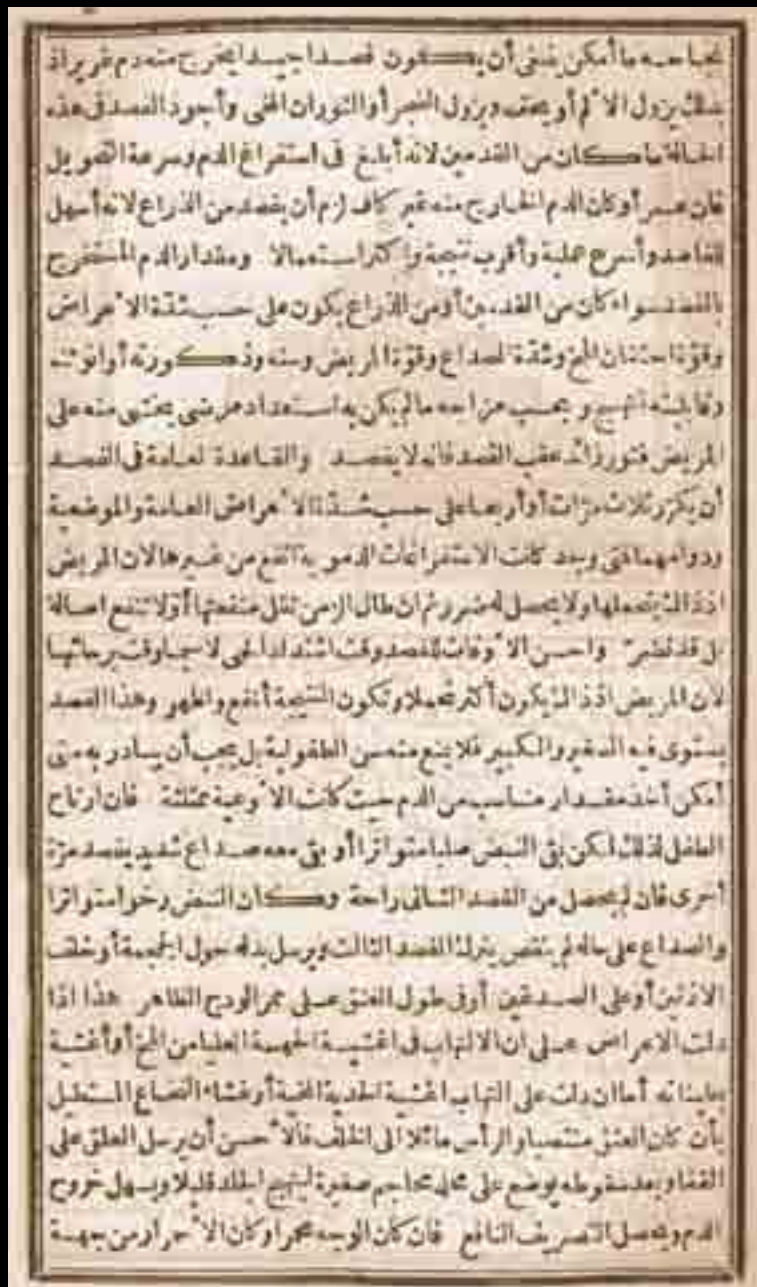 نجاحه ما أمكن ينبغى أن يكون فصدا جيدا يخرج منه دم غزير اذ
بذلك يزول الألم أو يخف ويزول الضجر أو الثوران المخى وأجود الفصد فى هذه
الحالة ما كان من القدمين لانه أبلغ فى استفراغ الدم وسرعة التحويل
فان عسر أو كان الدم الخارج منه غير كاف لزم أن يفصد من الذراع لانه أسهل
للفاصد وأسرع عملية وأقرب نتيجة واكثر استعمالا ومقدار الدم المستخرج
بالفصد سواء كان من القدمين أو من الذراع يكون على حسب شدة الأعراض
وقوة احتقان المخ وشدة الصداع وقوة المريض وسنه وذكورته أو انوثته
وقابليته للتهيج وبحسب مزاجه ما لم يكن به استعداد مرضى يخشى منه على
المريض فتور زائد عقب الفصد فانه لا يفصد والقاعدة العامة فى الفصد
أن يكرر ثلاث مرات أو أربعا على حسب شدة الأعراض العامة والموضعية
ودوامهما فتى وجد كانت الاستفراغات الدموية انفع من غيرها لان المريض
اذ ذاك يتحملها ولا يحصل له ضرر ثم ان طال الزمن تقل منفعتها أو لا تنفع اصالة
بل قد تضر واحسن الأوقات للفصد وقت اشتداد الحمى لا سيما وقت هيجانها
لان المريض اذ ذاك يكون أكثر تحملا وتكون النتيجة أنفع واظهر وهذا الفصد
يستوى فيه الصغير والكبير فلا يمنع منه سن الطفولية بل يجب أن يبادر به متى
أمكن أخذ مقدار مناسب من الدم حيث كانت الأوعية ممتلئة فان ارتاح
الطفل لذلك لكن بقى النبض صلبا متواترا أو بقى معه صداع شديد يفصد مرة
أخرى فان لم يحصل من الفصد الثانى راحة وكان النبض رخوا متواترا
والصداع على حاله لم ينقص يترك الفصد الثالث ويرسل بدله حول الجمجمة أو خلف
الاذنين أو على الصدغين أو فى طول العنق على ممر الودج الظاهر هذا اذا
دلت الاعراض على ان الالتهاب فى اغشية الجهة العليا من المخ أو أغشية
بطيناته أما ان دلت على التهاب اغشية الحدبة المخية أو غشاء النخاع المستطيل
بأن كان العنق منتصبا والرأس مائلا الى الخلف فالأحسن أن يرسل العلق على
القفا وبعد سقوطه يوضع على محله محاجم صغيرة ليتهيج الجلد قليلا ويسهل خروج
الدم ويحصل التصريف النافع فان كان الوجه محمرا وكان الأحمرار من جهة